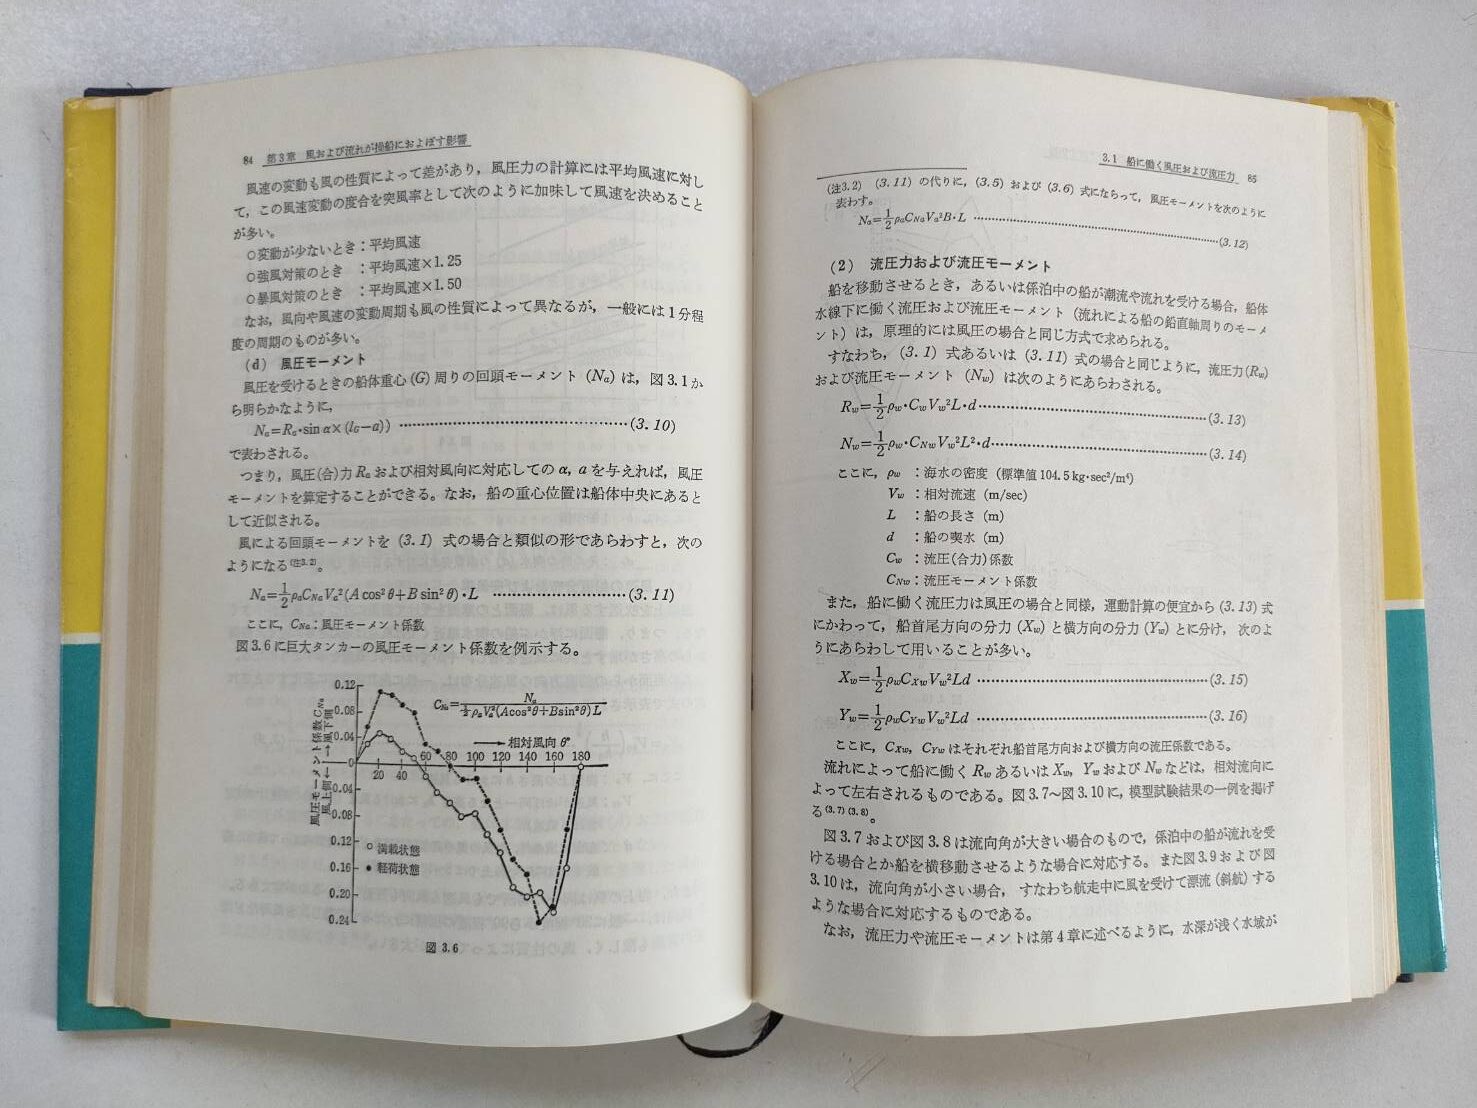 84 第3章 風および流れが操船におよぼす影響
風速の変動も風の性質によって差があり，風圧力の計算には平均風速に対し
て，この風速変動の度合を突風率として次のように加味して風速を決めること
が多い。
○変動が少ないとき：平均風速
○強風対策のとき ：平均風速×1.25
○暴風対策のとき ：平均風速×1.50
なお，風向や風速の変動周期も風の性質によって異なるが，一般には1分程
度の周期のものが多い。
(d) 風圧モーメント
風圧を受けるときの船体重心(G)周りの回頭モーメント(Na)は，図3.1か
ら明らかなように，
Na=Ra·sin α×(lG−a)) ……………………………………(3.10)
で表わされる。
つまり，風圧(合)力Raおよび相対風向に対応してのα, aを与えれば，風圧
モーメントを算定することができる。なお，船の重心位置は船体中央にあると
して近似される。
風による回頭モーメントを (3.1) 式の場合と類似の形であらわすと，次の
ようになる(注3.2)。
Na=1/2 ρaCNaVa²(A cos²θ+B sin²θ)·L ……………………(3.11)
ここに，CNa：風圧モーメント係数
図3.6に巨大タンカーの風圧モーメント係数を例示する。
風圧モーメント係数 CNa
風上側← →風下側
0.12
0.08
0.04
0
0.04
0.08
0.12
0.16
0.20
0.24
CNa= Na / ½ρaVa²(Acos²θ+Bsin²θ)L
→相対風向 θ°
20 40 60 80 100 120 140 160 180
○ 満載状態
● 軽荷状態
図 3.6
3.1 船に働く風圧および流圧力 85
(注3.2) (3.11) の代りに，(3.5) および (3.6) 式にならって，風圧モーメントを次のように
表わす。
Na=1/2 ρaCNaVa²B·L ……………………………………(3.12)
(2) 流圧力および流圧モーメント
船を移動させるとき，あるいは係泊中の船が潮流や流れを受ける場合，船体
水線下に働く流圧および流圧モーメント（流れによる船の鉛直軸周りのモーメ
ント）は，原理的には風圧の場合と同じ方式で求められる。
すなわち，(3.1) 式あるいは (3.11) 式の場合と同じように，流圧力(Rw)
および流圧モーメント (Nw) は次のようにあらわされる。
Rw=1/2 ρw·CwVw²L·d ……………………………………(3.13)
Nw=1/2 ρw·CNwVw²L²·d ……………………………………(3.14)
ここに，ρw ：海水の密度 (標準値 104.5 kg·sec²/m⁴)
Vw ：相対流速 (m/sec)
L ：船の長さ (m)
d ：船の喫水 (m)
Cw ：流圧(合力)係数
CNw：流圧モーメント係数
また，船に働く流圧力は風圧の場合と同様，運動計算の便宜から (3.13) 式
にかわって，船首尾方向の分力 (Xw) と横方向の分力 (Yw) とに分け，次のよ
うにあらわして用いることが多い。
Xw=1/2 ρwCXwVw²Ld ……………………………………(3.15)
Yw=1/2 ρwCYwVw²Ld ……………………………………(3.16)
ここに，CXw，CYw はそれぞれ船首尾方向および横方向の流圧係数である。
流れによって船に働く Rw あるいは Xw，Yw および Nw などは，相対流向に
よって左右されるものである。図3.7〜図3.10に，模型試験結果の一例を掲げ
る(3.7)(3.8)。
図3.7および図3.8は流向角が大きい場合のもので，係泊中の船が流れを受
ける場合とか船を横移動させるような場合に対応する。また図3.9および図
3.10は，流向角が小さい場合，すなわち航走中に風を受けて漂流(斜航)する
ような場合に対応するものである。
なお，流圧力や流圧モーメントは第4章に述べるように，水深が浅く水域が